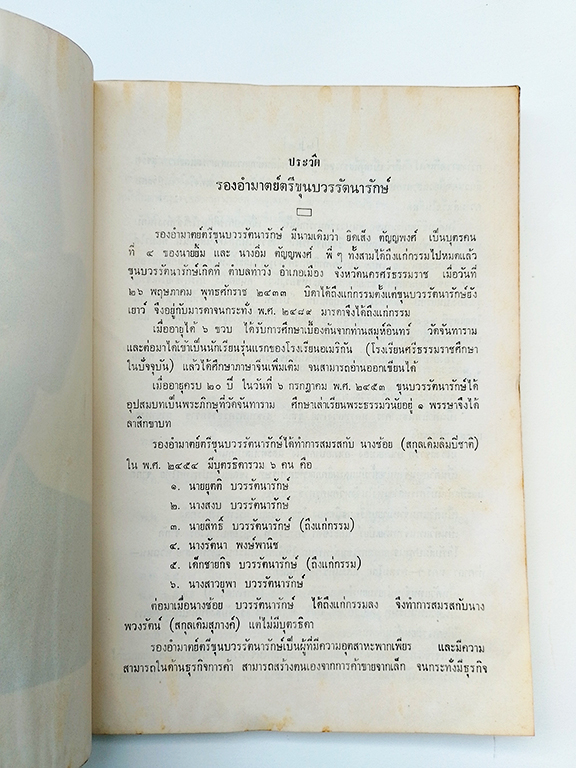 ประวัติ
รองอำมาตย์ตรีขุนบวรรัตนารักษ์
รองอำมาตย์ตรีขุนบวรรัตนารักษ์ มีนามเดิมว่า ยิดเส็ง ตัญญพงศ์ เป็นบุตรคน
ที่ ๔ ของนายยิ้ม และ นางอิ่ม ตัญญพงศ์ พี่ ๆ ทั้งสามได้ถึงแก่กรรมไปหมดแล้ว
ขุนบวรรัตนารักษ์เกิดที่ ตำบลท่าวัง อำเภอเมือง จังหวัดนครศรีธรรมราช เมื่อวันที่
๒๖ พฤษภาคม พุทธศักราช ๒๔๓๓ บิดาได้ถึงแก่กรรมตั้งแต่ขุนบวรรัตนารักษ์ยัง
เยาว์ จึงอยู่กับมารดาจนกระทั่ง พ.ศ. ๒๔๘๙ มารดาจึงได้ถึงแก่กรรม
เมื่ออายุได้ ๖ ขวบ ได้รับการศึกษาเบื้องต้นจากท่านสมุห์อินทร์ วัดจันทาราม
และต่อมาได้เข้าเป็นนักเรียนรุ่นแรกของโรงเรียนอเมริกัน (โรงเรียนศรีธรรมราชศึกษา
ในปัจจุบัน) แล้วได้ศึกษาภาษาจีนเพิ่มเติม จนสามารถอ่านออกเขียนได้
เมื่ออายุครบ ๒๐ ปี ในวันที่ ๖ กรกฎาคม พ.ศ. ๒๔๕๓ ขุนบวรรัตนารักษ์ได้
อุปสมบทเป็นพระภิกษุที่วัดจันทาราม ศึกษาเล่าเรียนพระธรรมวินัยอยู่ ๑ พรรษาจึงได้
ลาสิกขาบท
รองอำมาตย์ตรีขุนบวรรัตนารักษ์ได้ทำการสมรสกับ นางช้อย (สกุลเดิมลิมปิ์ชาติ)
ใน พ.ศ. ๒๔๕๔ มีบุตรธิดารวม ๖ คน คือ
๑. นายยุตติ บวรรัตนารักษ์
๒. นางสงบ บวรรัตนารักษ์
๓. นายสิทธิ์ บวรรัตนารักษ์ (ถึงแก่กรรม)
๔. นางรัตนา พงษ์พานิช
๕. เด็กชายกิจ บวรรัตนารักษ์ (ถึงแก่กรรม)
๖. นางสาวยุพา บวรรัตนารักษ์
ต่อมาเมื่อนางช้อย บวรรัตนารักษ์ ได้ถึงแก่กรรมลง จึงทำการสมรสกับนาง
พวงรัตน์ (สกุลเดิมสุภางค์) แต่ไม่มีบุตรธิดา
รองอำมาตย์ตรีขุนบวรรัตนารักษ์เป็นผู้ที่มีความอุตสาหะพากเพียร และมีความ
สามารถในด้านธุรกิจการค้า สามารถสร้างตนเองจากการค้าขายจากเล็ก จนกระทั่งมีธุรกิจ